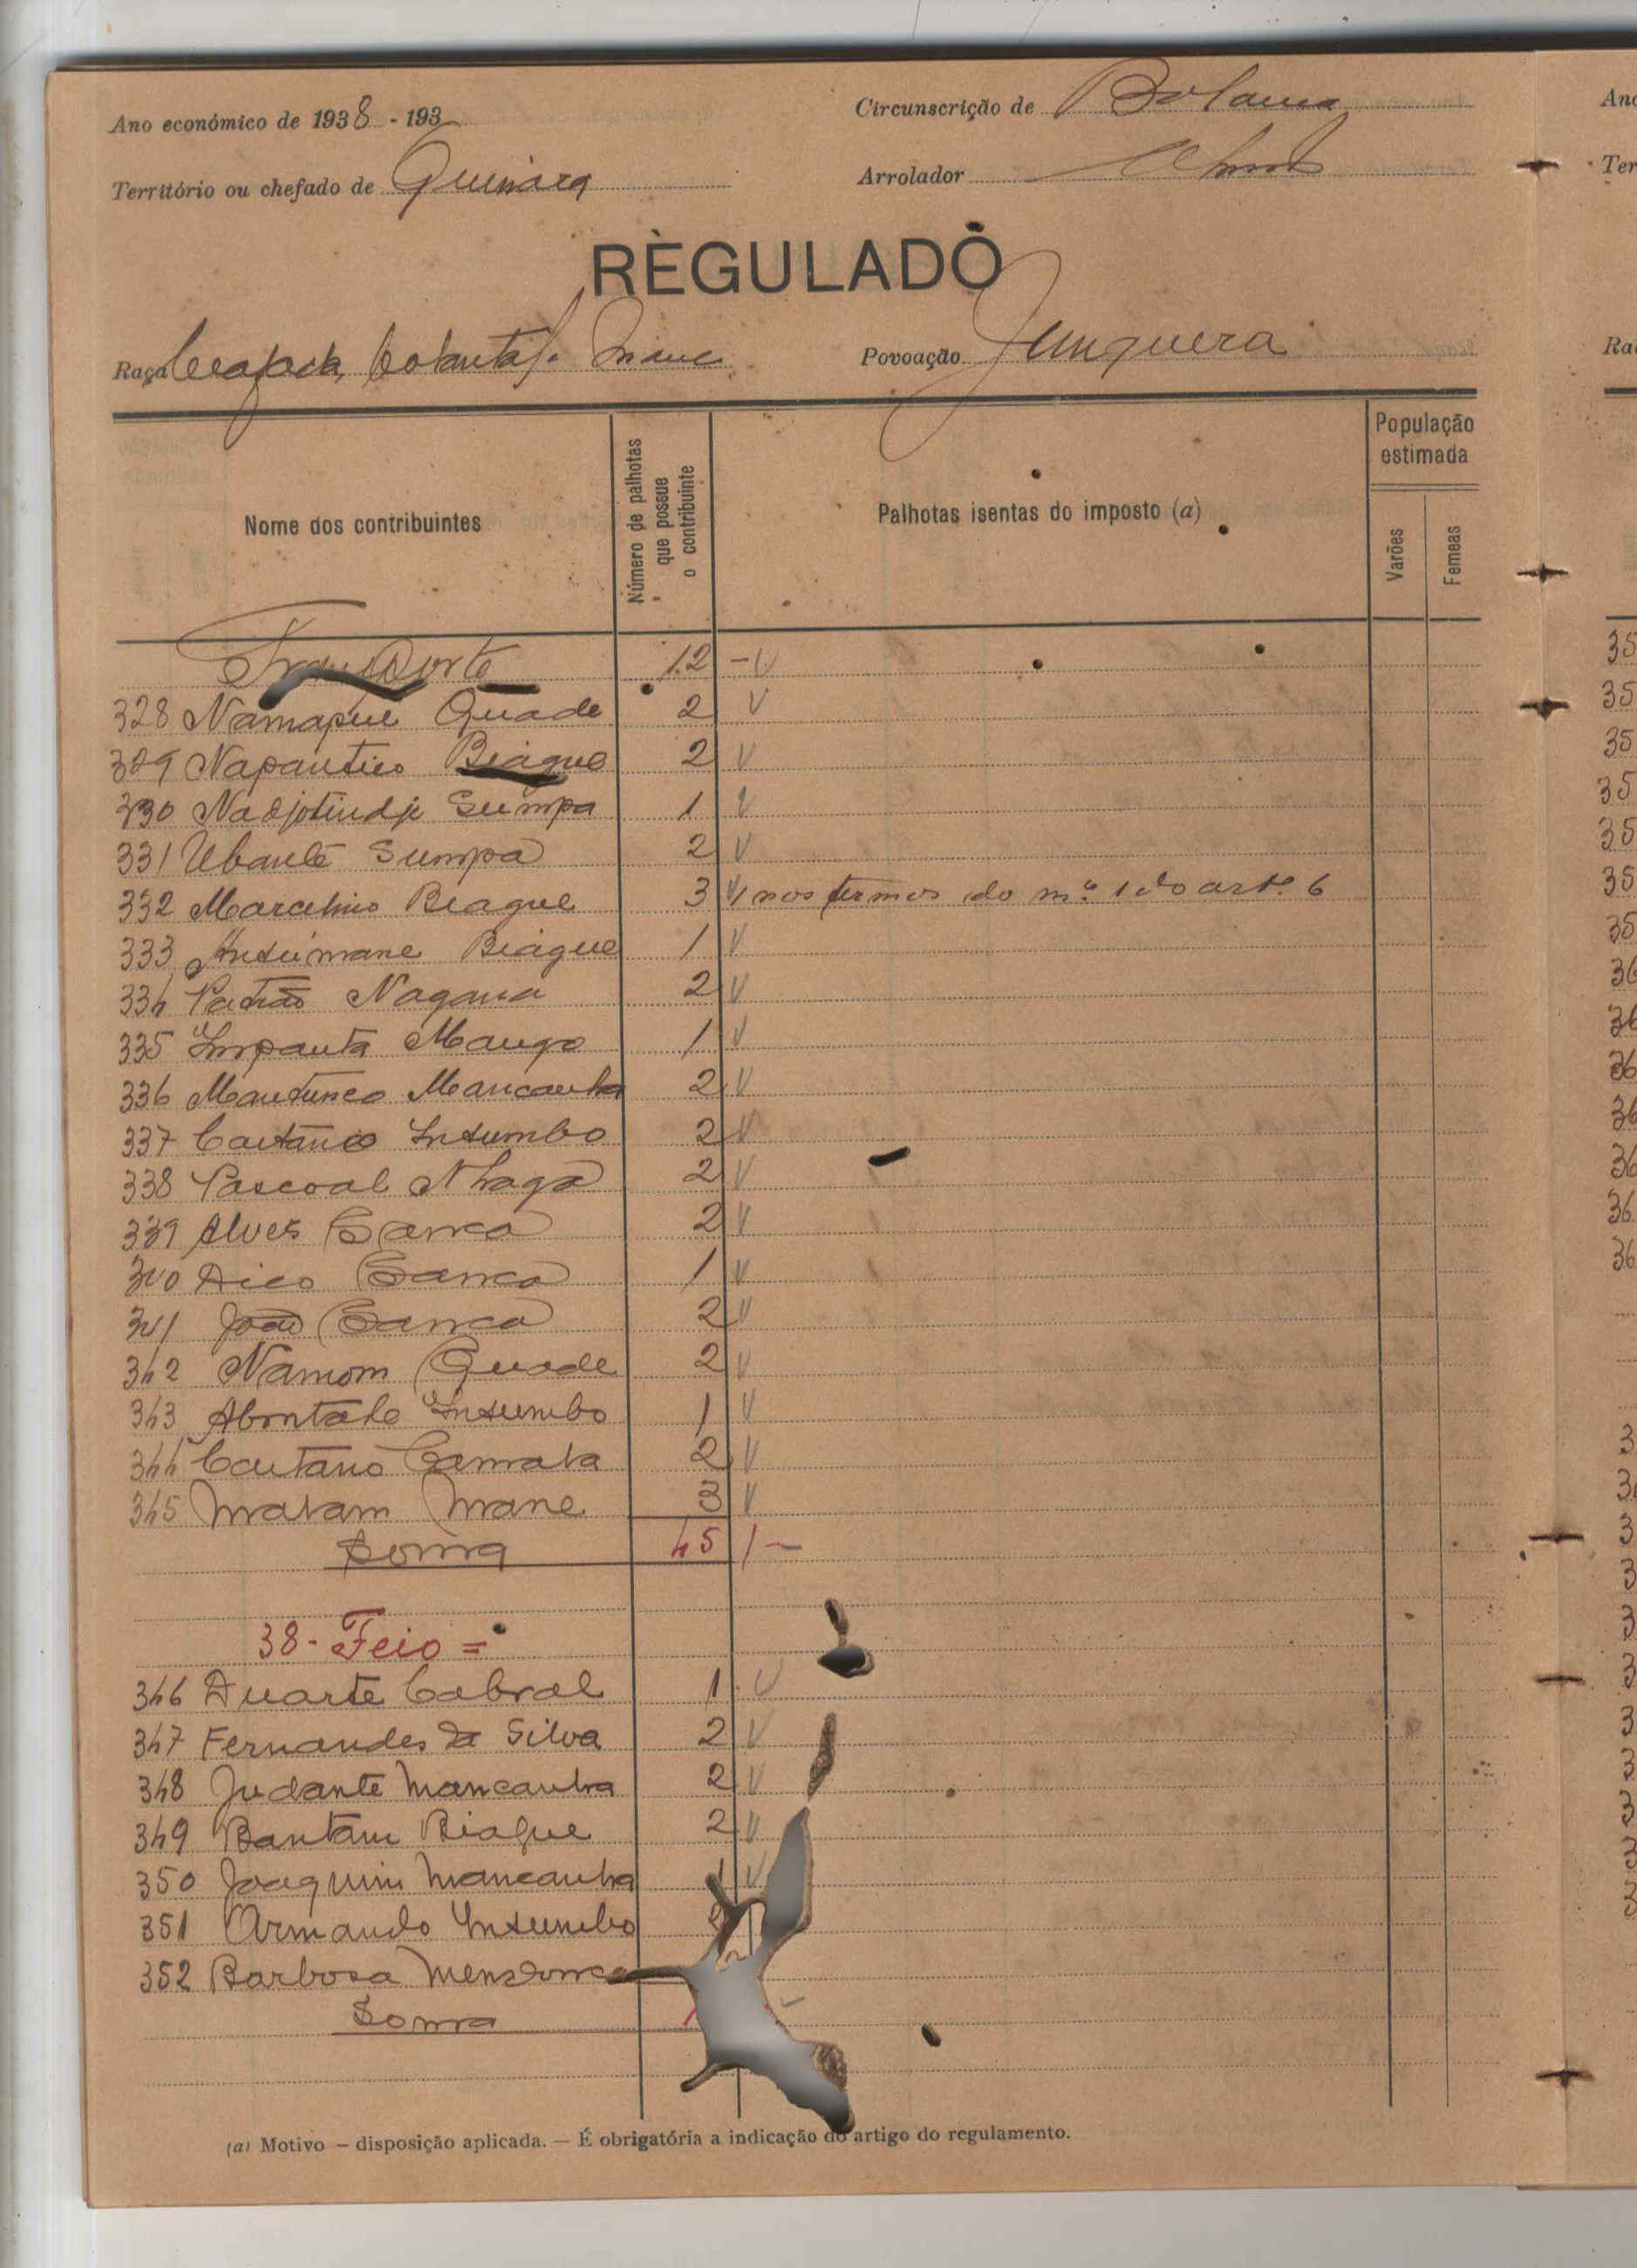 Ano económico de 1938 - 193
Circunscrição de Bolama
Território ou chefado de Quinara
Arrolador
RÈGULADO
Raça
Povoação Junquera
Nome dos contribuintes
Número de palhotas que possue o contribuinte
Palhotas isentas do imposto (a)
População estimada
Varões
Femeas
Transporte 12 - V
328 Namapue Quade 2 V
329 Napantico Biague 2 V
330 Nadjotindje Sumpa 1 V
331 Ubanté Sumpa 2 V
332 Marcelino Biague 3 V nos termos do n.º 1 do art.º 6
333 Ansumane Biague 1 V
334 Patrão Nagana 2 V
335 Impanta Mango 1 V
336 Mantunco Mancanha 2 V
337 Caetano Insumbo 2 V
338 Pascoal Nhaga 2 V
339 Alves Sanca 2 V
340 Dico Sanca 1 V
341 João Sanca 2 V
342 Namom Quade 2 V
343 Insumbo 1 V
344 Caetano Camata 2 V
345 Malam Mane 3 V
Soma 45 / -
38 - Feio =
346 Duarte Cabral 1 V
347 Fernandes da Silva 2 V
348 Judante Mancanha 2 V
349 Bantam Biague 2 V
350 Joaquim Mancanha 1 V
351 Armando Insumbo 2
352 Barbosa Mendonca
Soma
(a) Motivo — disposição aplicada. — É obrigatória a indicação do artigo do regulamento.